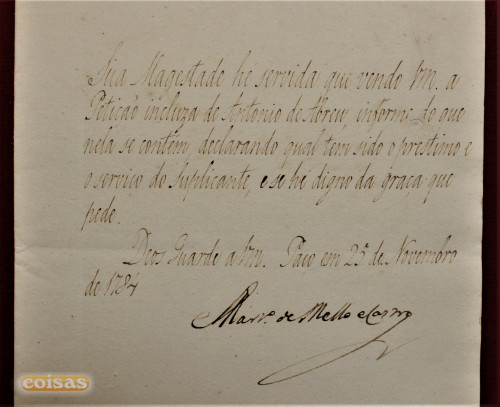 Sua Magestade hé servida que vendo Vm. a
Petição incluza de Antonio de Abreu, informe do que
nela se contem, declarando qual tem sido o prestimo e
o serviço do suplicante, e se hé digno da graça que
pede.
Deos Guarde a Vm. Paço em 25 de Novembro
de 1784
Mart.º de Mello e Castro
coisas